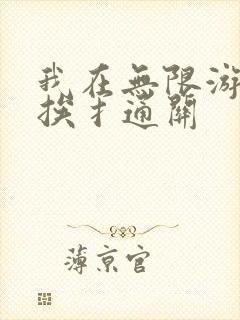 我在無限游
挨才通關
薄京官